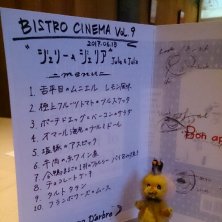 BISTRO CINEMA Vol. 9
2017.06.18
"ジュリー&ジュリア"
Julie & Julia
menu
1. 舌平目のムニエル レモン風味
2. 極上フルーツトマトのブルスケッタ
3. ポーチドエッグとベーコンのサラダ
4. オマール海老のテルミドール
5. 塩豚のアスピック
6. 牛肉の赤ワイン煮
7.
8. チョコレートケーキ
9. タルトタタン
10. フランボワーズのムース
Bon ap